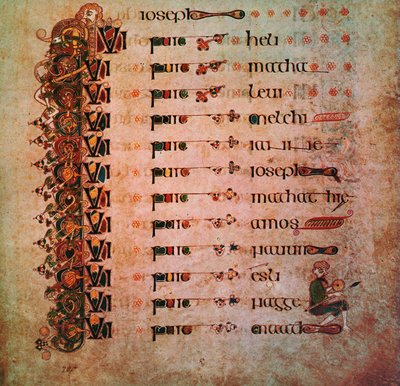 ioseph
Qui fuit heli
Qui fuit matha
Qui fuit leui
Qui fuit melchi
Qui fuit
Qui fuit ioseph
Qui fuit mathathie
Qui fuit amos
Qui fuit nauum
Qui fuit esli
Qui fuit nagge
Qui fuit